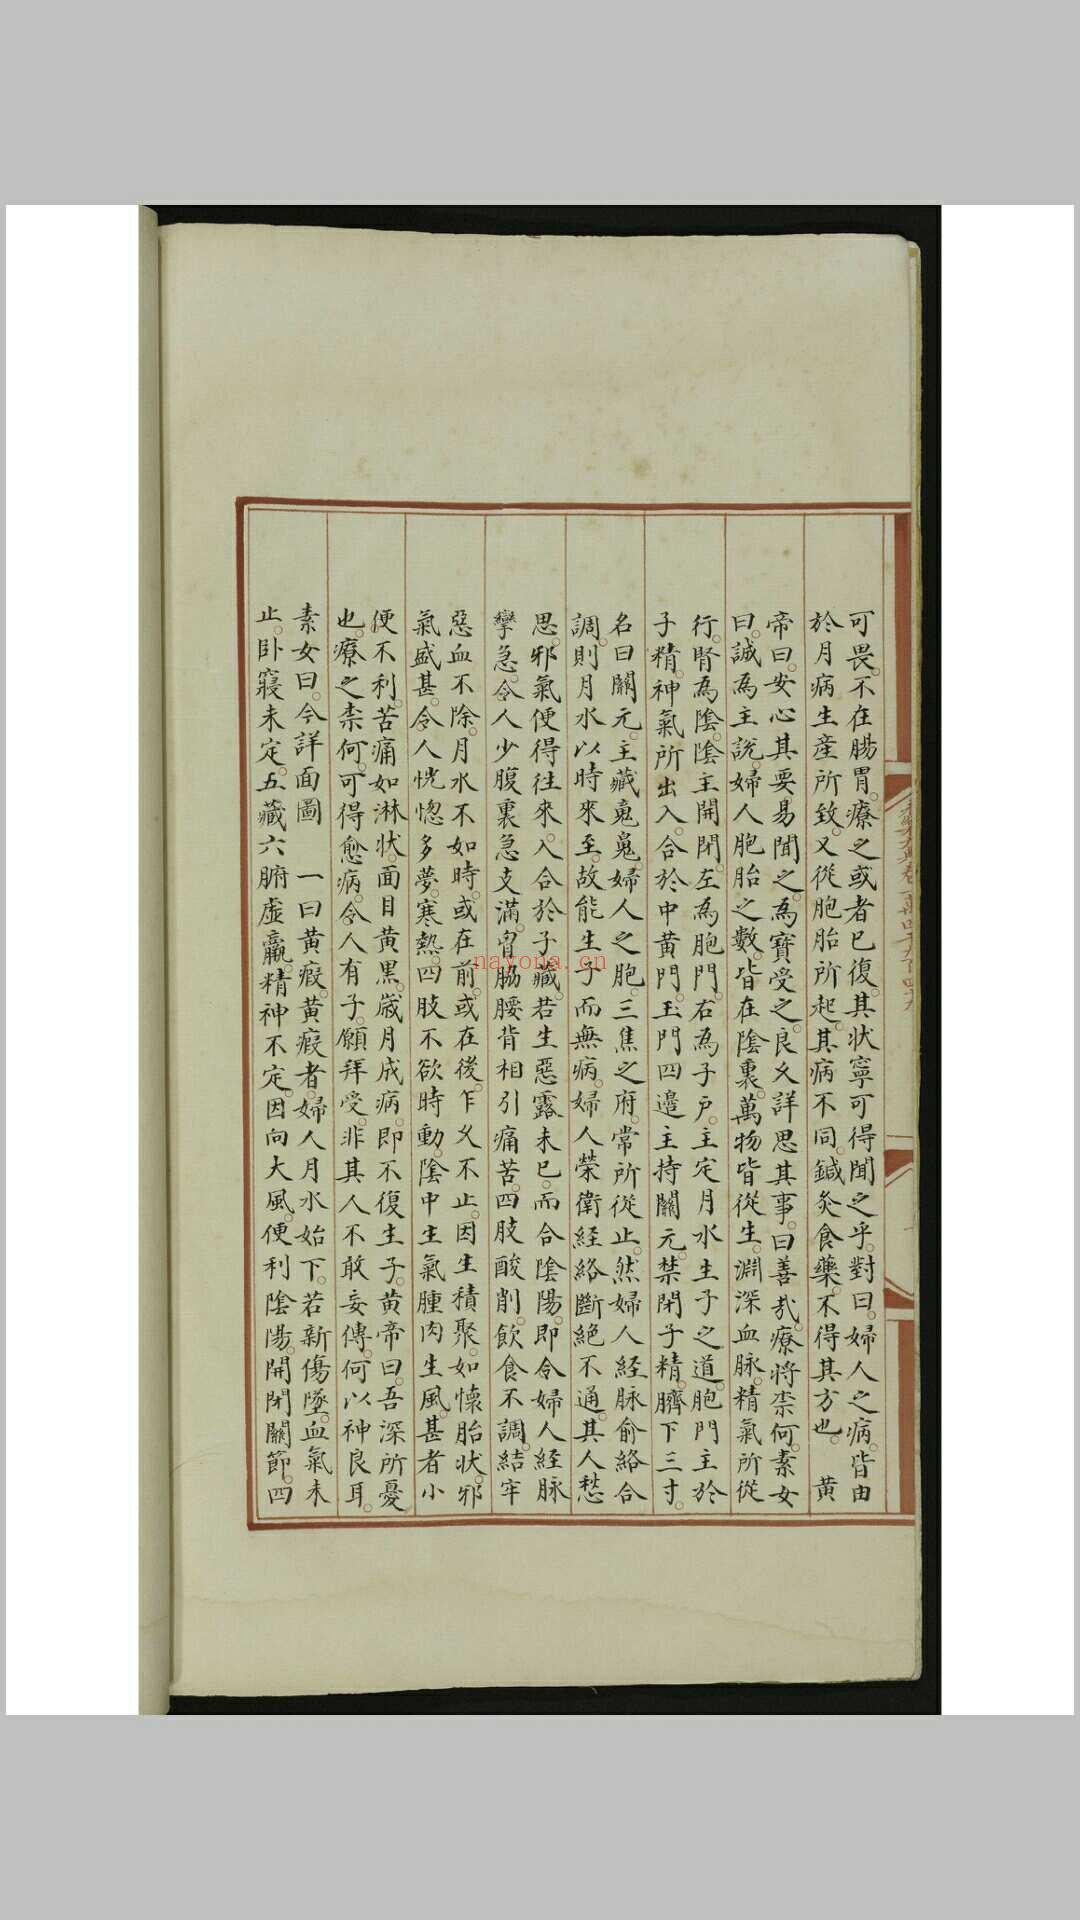 可畏。不在腸胃。療之或者已復。其状寧可得聞之乎。對曰。婦人之病。皆由
於月病生産所致。又從胞胎所起。其病不同。鍼灸食藥。不得其方也。黄
帝曰。安心其要易聞之。為寶受之。良久詳思其事。曰善哉。療將柰何。素女
曰。誠為主說。婦人胞胎之數。皆在陰裏。萬物皆從生。淵深血脉。精氣所從
行。腎為陰。陰主開閉。左為胞門。右為子户。主定月水生子之道。胞門主於
子精。神氣所出入。合於中黄門。玉門四邉主持關元。禁閉子精。臍下三寸。
名曰關元。主藏䰟䰟。婦人之胞。三焦之府。常所從止。然婦人經脉俞絡合
調。則月水以時來至。故能生子而無病。婦人榮衛經絡斷絶不通。其人愁
思。邪氣便得往來。入合於子藏。若生惡露未已。而合陰陽。即令婦人經脉
攣急。令人少腹裏急支滿。胷脇腰背相引痛苦。四肢酸削。飲食不調。結牢
惡血不除。月水不如時。或在前。或在後。乍久不止。因生積聚。如懷胎状。邪
氣盛甚。令人恍惚多夢。寒熱。四肢不欲時動。陰中生氣腫肉生風。甚者小
便不利。苦痛如淋状。面目黄黒。歲月成病。即不復生子。黄帝曰。吾深所憂
也。療之柰何。可得愈病。令人有子。願拜受。非其人不敢妄傳。何以神良耳。
素女曰。今詳面圖 一曰黄瘕。黄瘕者。婦人月水始下。若新傷墮。血氣未
止。卧寢未定。五藏六腑虛羸。精神不定。因向大風。便利陰陽。開閉關節。四
nayona.cn